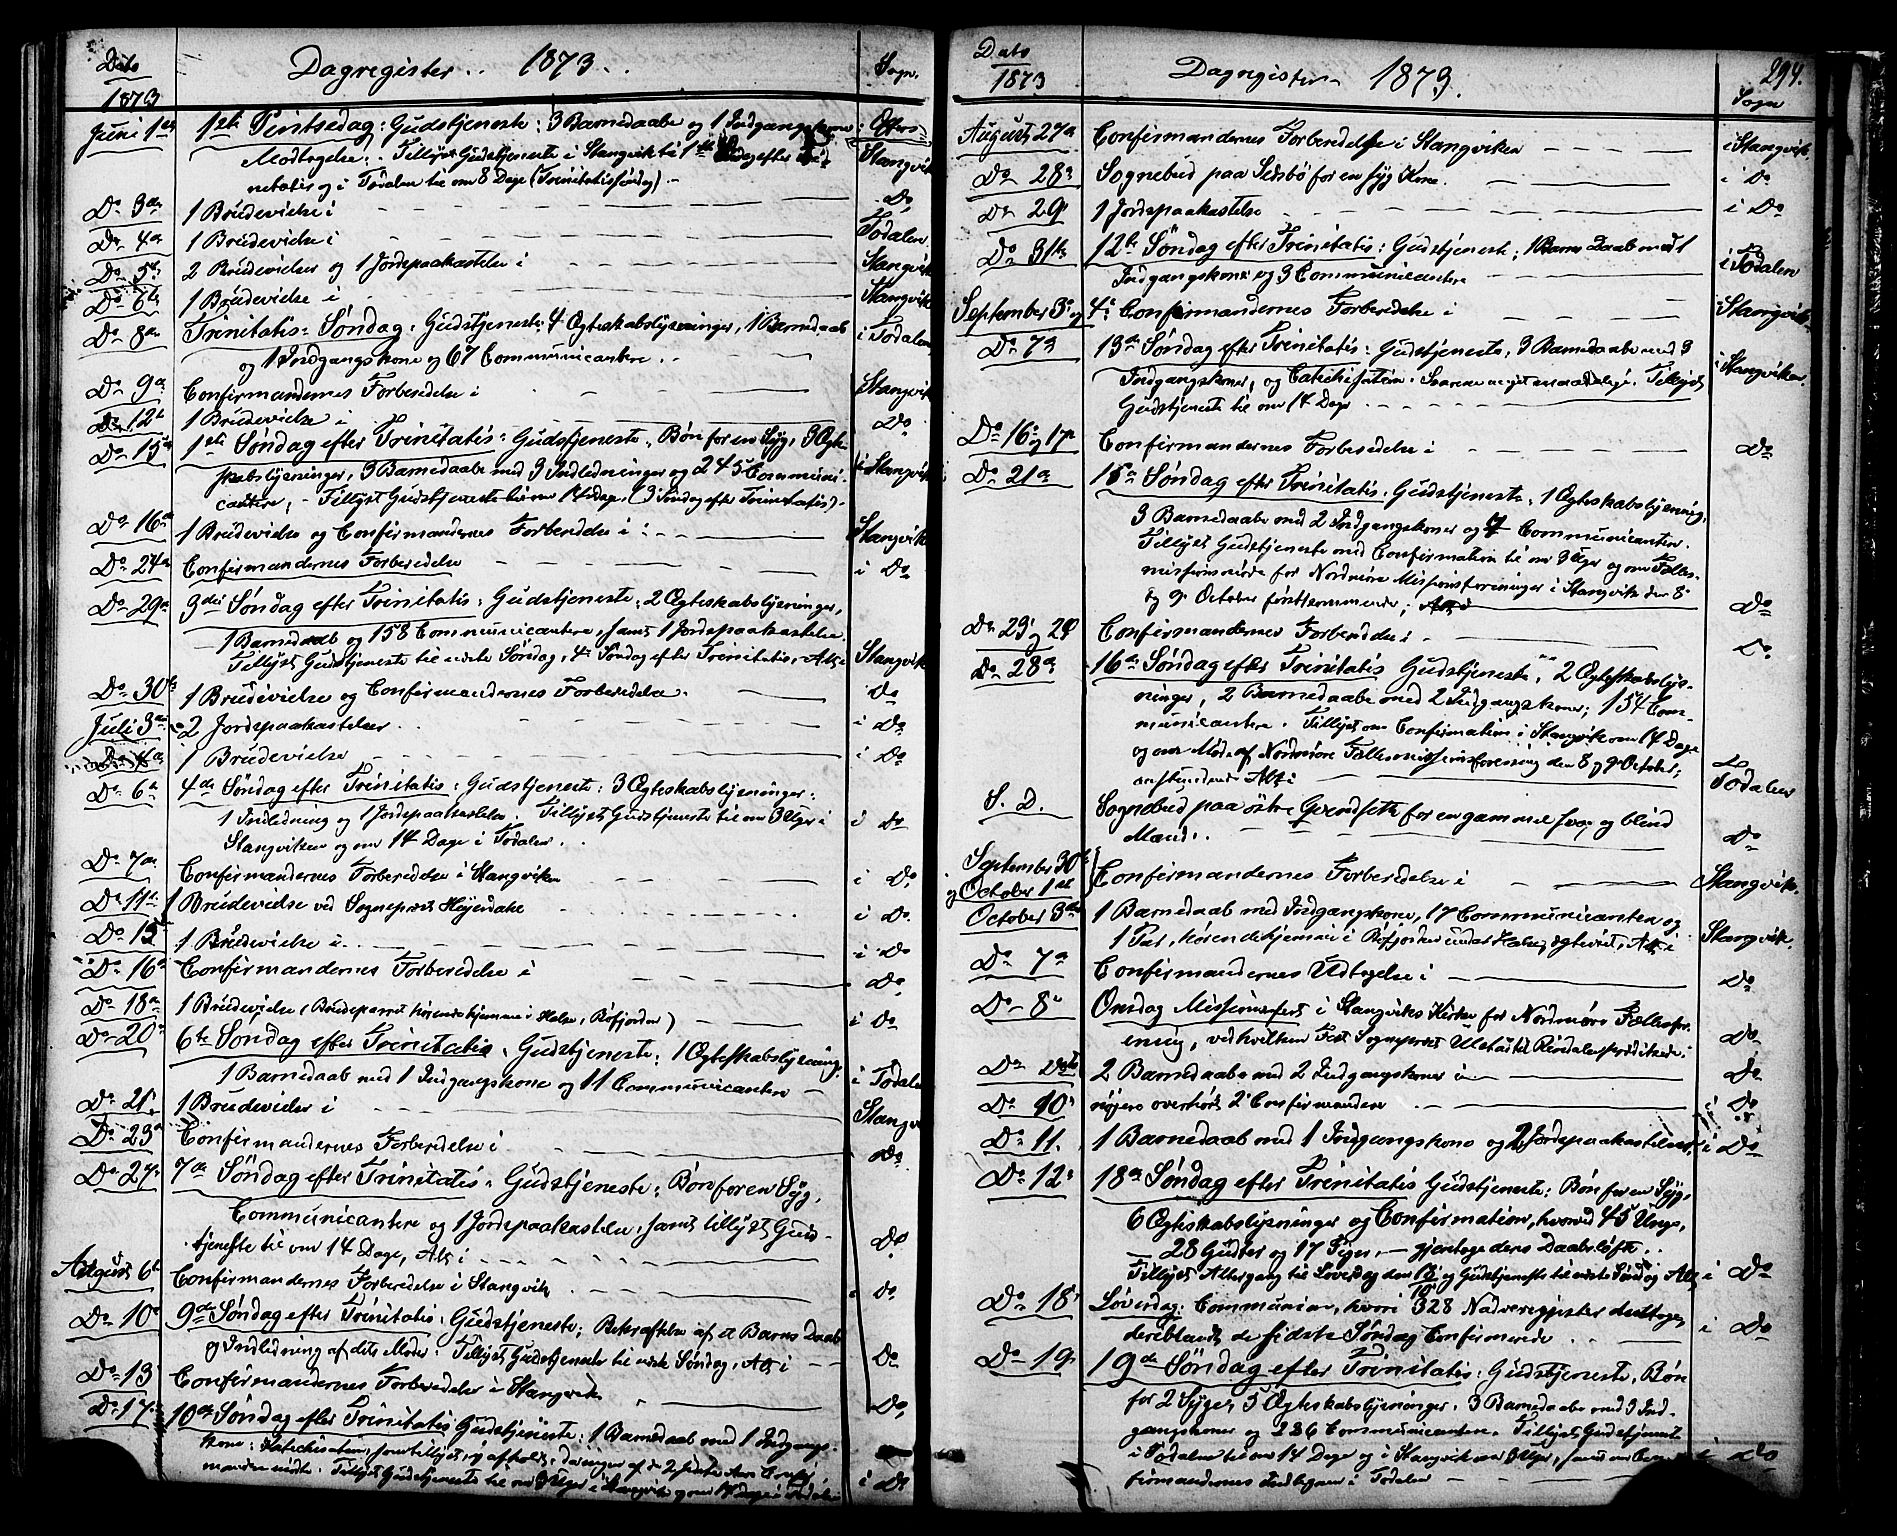 Dato
1873
Dagregister .. 1873 ..
Sogn.
Juni 1ste 1ste Pintsedag: Gudstjeneste: 3 Barnedaabe og 1 Indgangskone
Modtagelse. Tillyst Gudstjeneste i Stangvik til 1ste Søndag efter Tri- Stangvik
nitatis og i Todalen til om 8 Dage (Trinitatissøndag). -
Do 3die 1 Brudevielse i Do
Do 4de 1 Brudevielse i Todalen
Do 5te 2 Brudevielser og 1 Jordspaakastelse i Stangvik
Do 6te 1 Brudevielse i Stangvik
Do 8de Trinitatis Søndag: Gudstjeneste: 4 Ægteskabslysninger, 1 Barnedaab i Todalen
og 1 Indgangskone og 67 Communicantere.
Do 9de Confirmandernes Forberedelse i Stangvik
Do 12te 1 Brudevielse i Do
Do 15de 1ste Søndag efter Trinitatis: Gudstjeneste, Bøn for en Syg, 3 Ægte-
skabslysninger, 3 Barnedaabe med 3 Indledninger og 245 Communi- i Stangvik
cantere, - Tillyst Gudstjeneste til om 14 dage, (3 Søndag efter Trinitatis). -
Do 16de 1 Brudevielse og Confirmandernes Forberedelse i: Stangvik
Do 24de Confirmandernes Forberedelse i Do
Do 29de 3die Søndag efter Trinitatis: Gudstjeneste, 2 Ægteskabslysninger,
1 Barnedaab og 158 Communicantere, samt 1 Jordspaakastelse.
Tillyst Gudstjeneste til næste Søndag, 4de Søndag efter Trinitatis, Alt i Stangvik
Do 30te 1 Brudevielse og Confirmandernes Forberedelse. Do
Juli 3die 2 Jordspaakastelser i Do
Do 4de 1 Brudevielse i Do
Do 6te 4de Søndag efter Trinitatis: Gudstjeneste: 3 Ægteskabslysninger:
1 Indledning og 1 Jordspaakastelse. Tillyst Gudstjeneste til om 3 Uger i i Do
Stangviken og om 14 Dage i Todalen.
Do 7de Confirmandernes Forberedelse i Stangviken i Do
Do 11te 1 Brudevielse ved Sogneprest Heyerdahl i Do
Do 15 1 Brudevielse i i Do
Do 16de Confirmandernes Forberedelse i Do
Do 18de 1 Brudevielse (Brudeparret hørende hjemme i Halse, ) i Do
Do 20de 6te Søndag efter Trinitatis, Gudstjeneste: 1 Ægteskabslysning
1 Barnedaab med 1 Indgangskone og 11 Communicantere i Todalen
Do 21. 1 Brudevielse i Stangvik
Do 23de Confirmandernes Forberedelse i Do
Do 27de 7de Søndag efter Trinitatis: Gudstjeneste: Bøn for en Syg,
Communicantere og 1 Jordspaakastelse, samt tillyst Guds-
tjeneste til om 14 Dage, Alt i Do
August 6te Confirmandernes Forberedelse i Stangvik Do
Do 10de 9de Søndag efter Trinitatis: Gudstjeneste; Bekræftelse af et Barns Daab
og Indledning af dets Moder. Tillyst Gudstjeneste til næste Søndag, Alt i Do
Do 13 Confirmandernes Forberedelse i Stangvik Do
Do 17de 10de Søndag efter Trinitatis Gudstjeneste: 1 Barnedaab med 1 Indgangs-
kone: Katechisation,
Tillyst Gudstjeneste til om 3 Uger i Stangvik og om 14 Dage i Todalen i Do
Dato
1873
Dagregister 1873.
294.
Sogn
August 27de Confirmandernes Forberedelse i Stangviken i Stangvik.
Do 28de Sognebud paa for en syg Kone i Do
Do 29de 1 Jordspaakastelse i Do
Do 31te 12te Søndag efter Trinitatis: Gudstjeneste, 1 Barns Daab med 1 i Todalen
Indgangskone og 3 Communicantere
September 3de og 4de Confirmandernes Forberedelse i Stangvik
Do 7de 13de Søndag efter Trinitatis: Gudstjeneste, 3 Barnedaabe med 3
Indgangskoner, og Catechisation. Svarene Tillyst i Stangviken
Gudstjeneste til om 14 Dage
Do 16de og 17de Confirmandernes Forberedelse i Do
Do 21de 15de Søndag efter Trinitatis: Gudstjeneste, 1 Ægteskabslysning,
3 Barnedaabe med 2 Indgangskoner og Communicanter.
Tillyst Gudstjeneste med Confirmation til om 3 Uger og om Fælles-
missionsmøde for Nordmøre Missionsforeninger i Stangvik den 8de
og 9de October førstkommende; Alt i Do
Do 23de og 24de Confirmandernes Forberedelse i Do
Do 28de 16de Søndag efter Trinitatis Gudstjeneste, 2 Ægteskabslys-
ninger, 2 Barnedaabe med 2 Indgangskoner, 154 Com-
municantere. Tillyst om Confirmation i Stangvik om 14 Dage
og om Møde af Nordmøre Fællesmissionsforening den 8 og 9de October;
anstundende Alt i Todalen
S. D. Sognebud paa østre for en gammel svag og blind
Mand. Do
September 30te
og October 1ste Confirmandernes Forberedelse i Stangvik.
October 3die 1 Barnedaab med Indgangskone, 17 Communicanter og
1 Par, hørende hjemme i under Halse, ægteviet, Alt i Stangvik.
Do 7de Confirmandernes Udtagelse i Do
Do 8de Onsdag Missionsfest i Stangviks Kirke for Nordmøre Fællesfor-
ening, ved hvilken Fest Sogneprest til Rindalen prædikede i Do
Do 2 Barnedaabe med 2 Indgangskoner i Do
Do 10de nøjere overhørt 2 Confirmandere i Do
Do 11. 1 Barnedaab med 1 Indgangskone og 2 Jordspaakastelser, i Do
Do 12te 18de Søndag efter Trinitatis Gudstjeneste: Bøn for en Syg,
6 Ægteskabslysninger og Confirmation, hvorved 45 Unge,
— 28 Gutter og 17 Piger, — gjentoge deres Daabsløfte.
Tillyst Altergang til Løverdag den 18/10 og Gudstjeneste til næste Søndag Alt i Do
Do 18de Løverdag: Communion, hvori 328 Nadvergjæster deeltoge,
deriblandt de sidste Søndag Confirmerede i Do
Do 19de 19de Søndag efter Trinitatis: Gudstjeneste, Bøn
for 2 Syge, 3 Ægteskabslysninger, 3 Barnedaabe med 3 Ind-
gangskoner og 226 Communicantere. Tillyst Gudstjeneste
i Todalen til om 14 Dage og i Stangvik om 3 Uger, samt om Con-
firmandernes i Todalen i Do